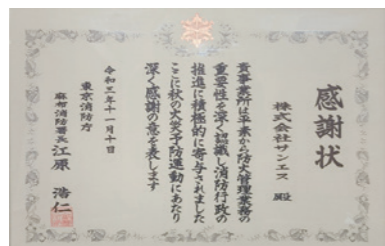 感謝状
株式会社サンエス 殿
貴事業所は平素から防火管理業務の
重要性を深く認識し消防行政の
推進に積極的に寄与されました
ここに秋の火災予防運動にあたり
深く感謝の意を表します
令和三年十一月十日
東京消防庁
麻布消防署長 江原 浩仁